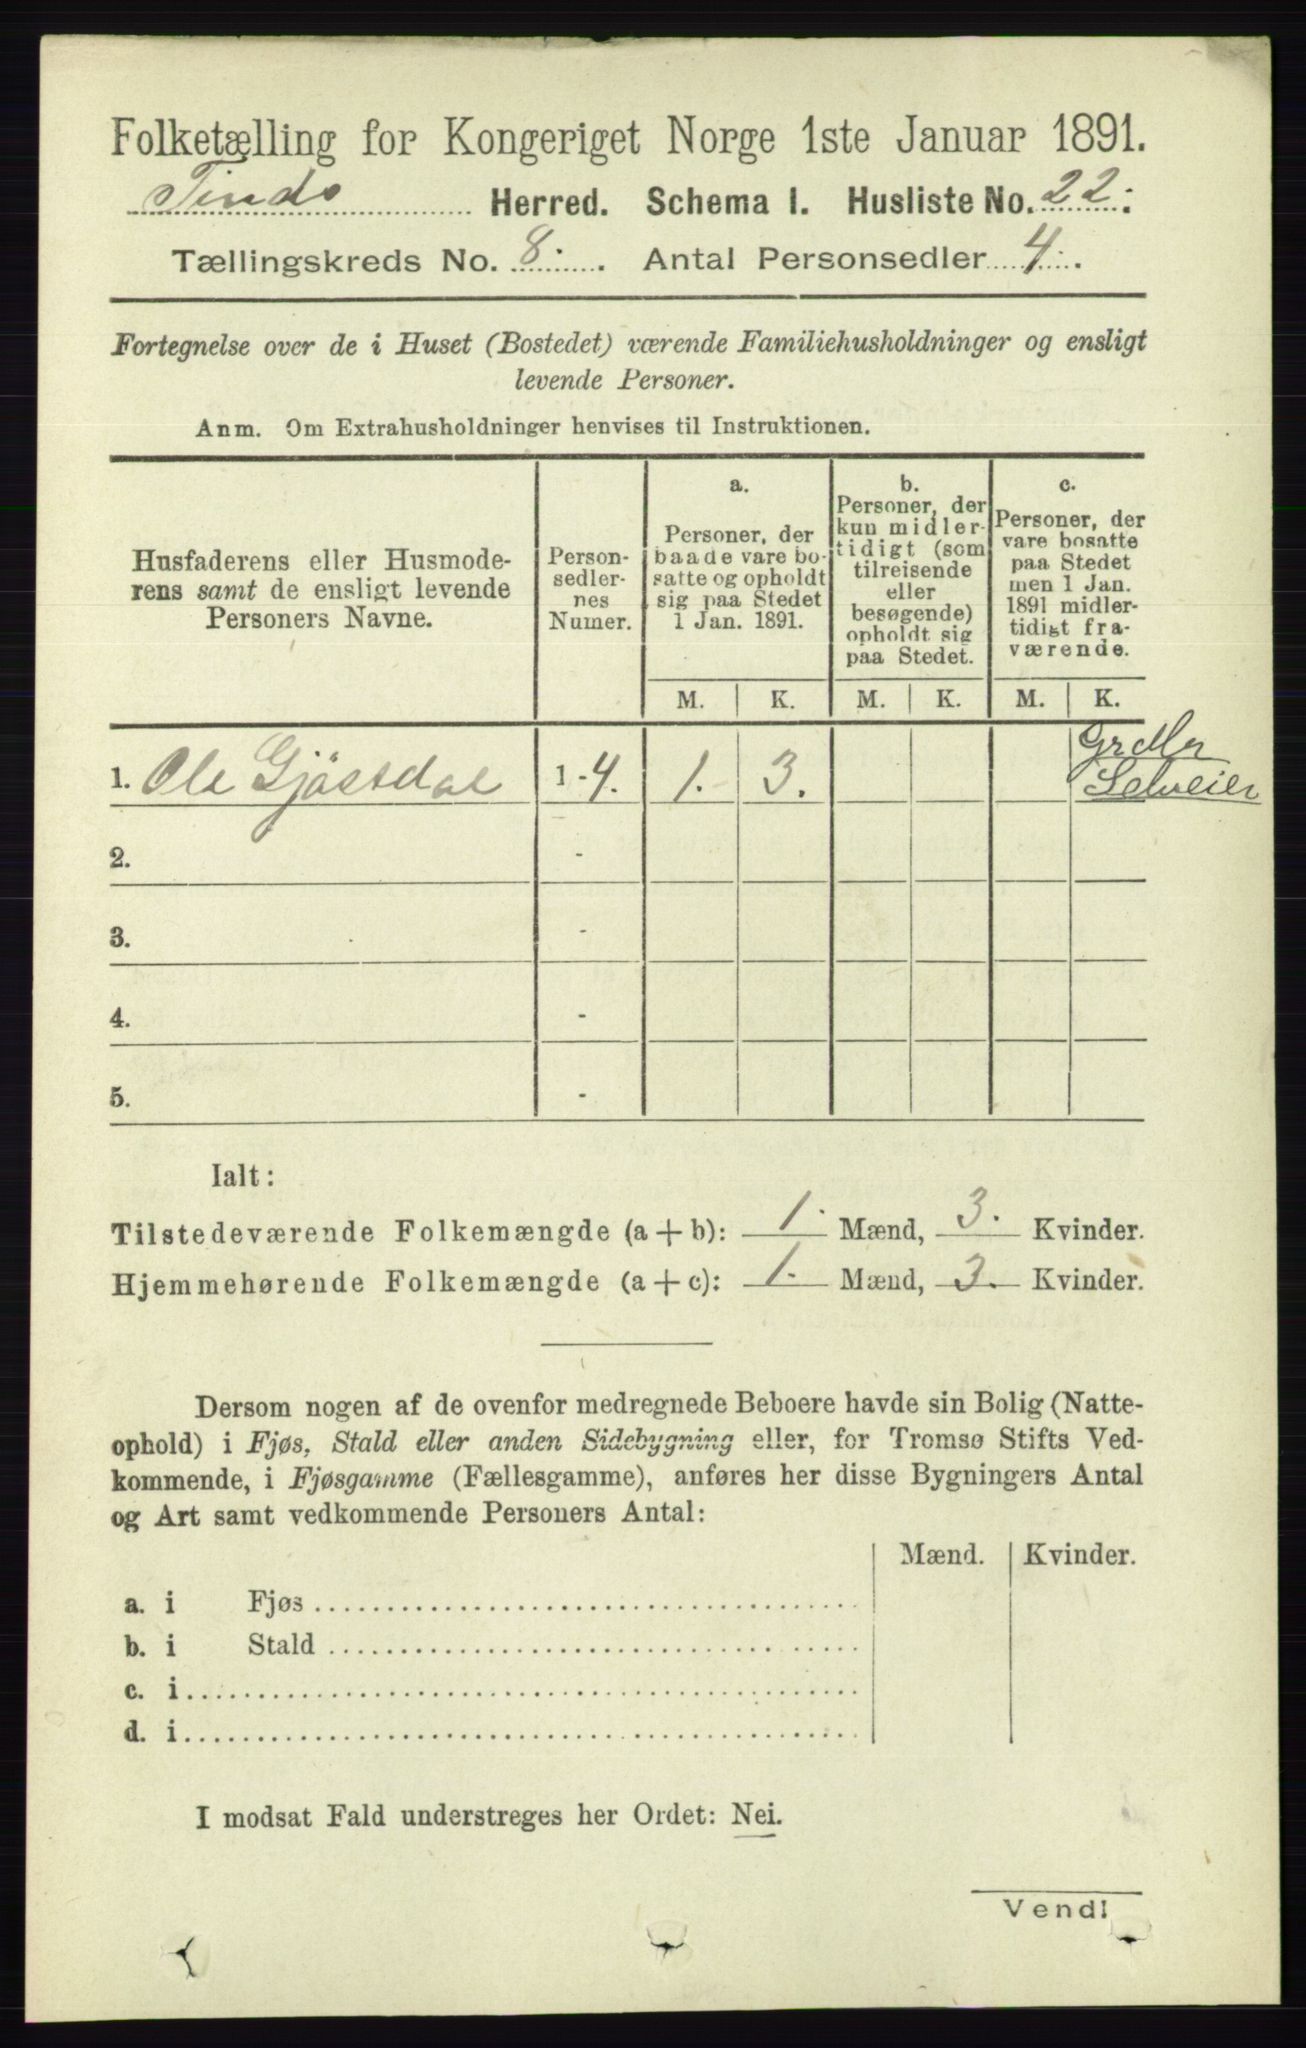 Folketælling for Kongeriget Norge 1ste Januar 1891.
Tinds Herred. Schema I. Husliste No. 22.
Tællingskreds No. 8. Antal Personsedler 4.
Fortegnelse over de i Huset (Bostedet) værende Familiehusholdninger og ensligt
levende Personer.
Anm. Om Extrahusholdninger henvises til Instruktionen.
Husfaderens eller Husmode-
rens samt de ensligt levende
Personers Navne.
Person-
sedler-
nes
Numer.
a.
Personer, der
baade vare bo-
satte og opholdt
sig paa Stedet
1 Jan. 1891.
b.
Personer, der
kun midler-
tidigt (som
tilreisende
eller
besøgende)
opholdt sig
paa Stedet.
c.
Personer, der
vare bosatte
paa Stedet
men 1 Jan.
1891 midler-
tidigt fra-
værende.
M. K. M. K. M. K.
1. Ole Gjösdal 1-4. 1. 3.
Selveier
2. -
3. -
4. -
5. -
Ialt:
Tilstedeværende Folkemængde (a+b): 1. Mænd, 3. Kvinder.
Hjemmehørende Folkemængde (a+c): 1. Mænd, 3. Kvinder.
Dersom nogen af de ovenfor medregnede Beboere havde sin Bolig (Natte-
ophold) i Fjøs, Stald eller anden Sidebygning eller, for Tromsø Stifts Ved-
kommende, i Fjøsgamme (Fællesgamme), anføres her disse Bygningers Antal
og Art samt vedkommende Personers Antal:
Mænd. Kvinder.
a. i Fjøs
b. i Stald
c. i
d. i
I modsat Fald understreges her Ordet: Nei.
Vend!